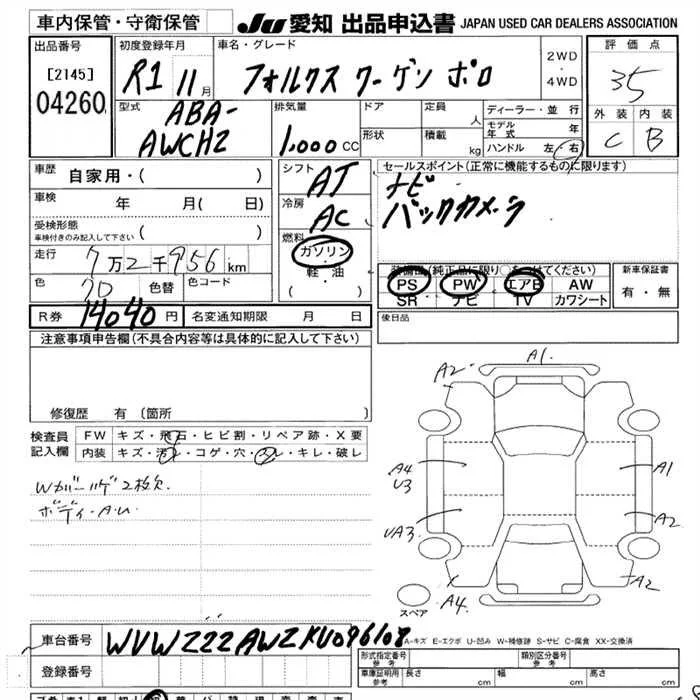 車内保管・守衛保管
JU 愛知 出品申込書 JAPAN USED CAR DEALERS ASSOCIATION
出品番号
[2145]
04260
初度登録年月
R1 11月
車名・グレード
フォルクス ワーゲン ポロ
2WD
・
4WD
評価点
35
外装 内装
C B
型式
ABA-
AWCHZ
排気量
1.000 CC
ドア
形状
定員
人
積載
kg
ディーラー・並行
モデル
年式
年
ハンドル 左・右
車歴
自家用・( )
車検
年 月( 日)
受検形態
車検付きのみ記入して下さい( )
走行
7万2千956km
色
クロ
色替
色コード
シフト
AT
冷房
AC
燃料
ガソリン
・
軽・油
( )
セールスポイント(正常に機能するものに限ります)
ナビ
バックカメラ
装備品(純正品に限り○をつけてください)
PS PW エアB AW
SR ナビ TV カワシート
新車保証書
有・無
R券 14040円
名変通知期限 月 日
後日品
注意事項申告欄(不具合内容等は具体的に記入して下さい)
修復歴 有(箇所 )
検査員
記入欄
FW キズ・飛石・ヒビ割・リペア跡・X要
内装 キズ・汚レ・コゲ・穴・スレ・キレ・破レ
Wカバーハゲ 2枚欠
ボディ・A.U
A2
A1
A4
U3
A1
UA3
A2
A2
A4
スペア
車台番号
WVWZZZAWZKU096108
登録番号
A-キズ E-エクボ U-凹み W-補修跡 S-サビ C-腐食 XX-交換済
形式指定番号
参考
類別区分番号
参考
車庫証明用
参考
長さ cm
幅 cm
高さ cm